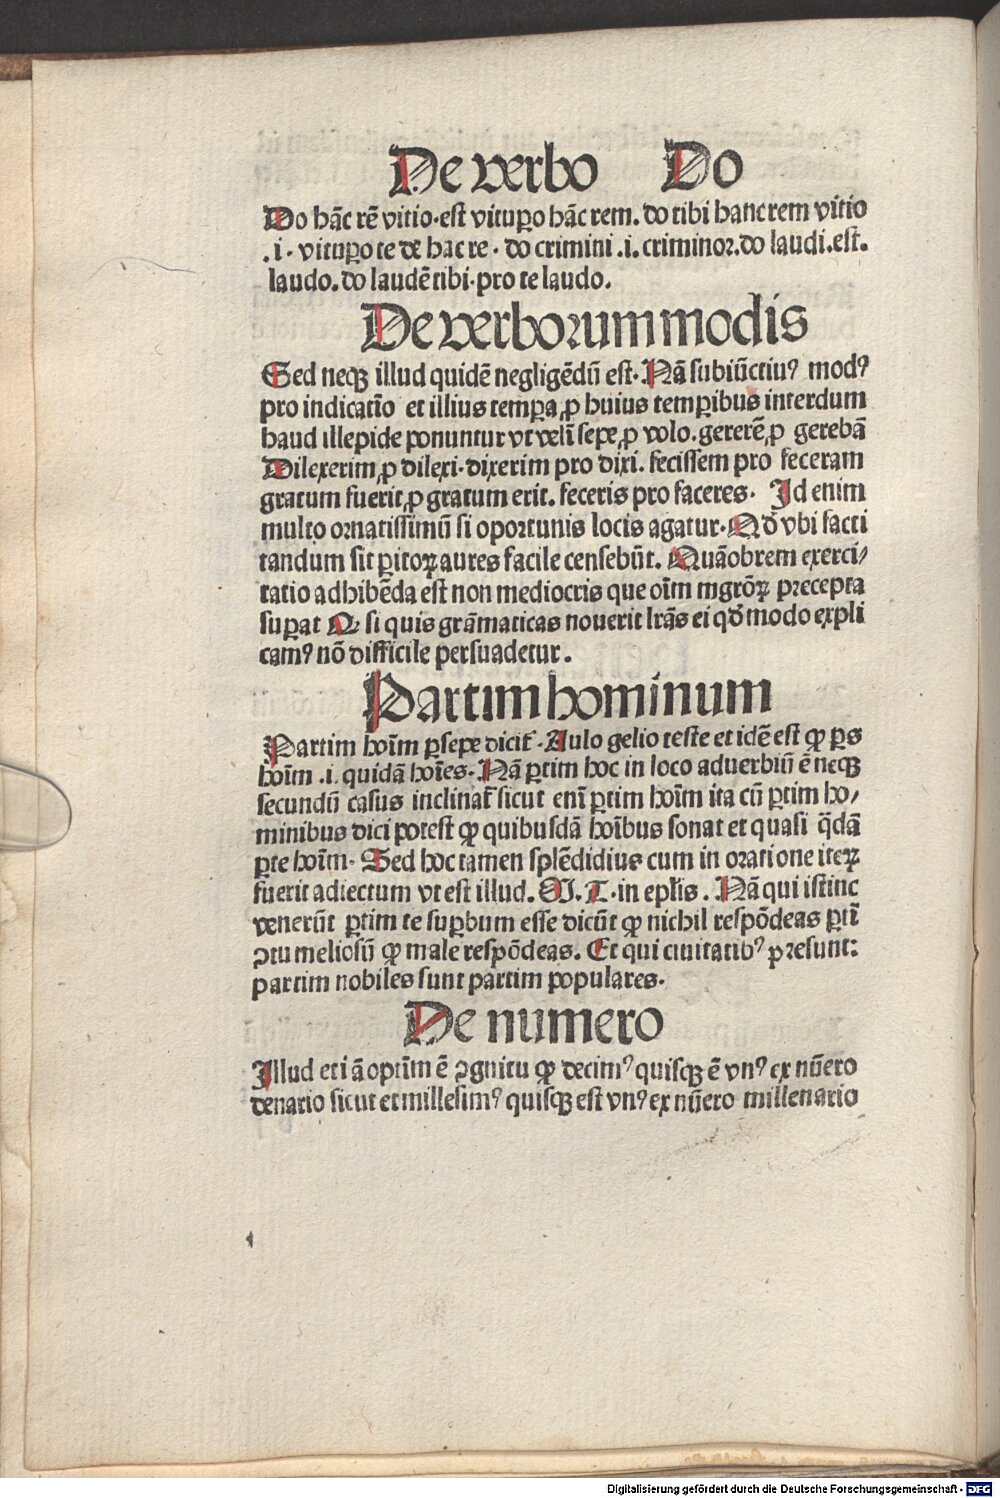 De verbo Do
Do hāc rē vitio·est vitupo hāc rem. do tibi hanc rem vitio
.i· vitupo te de hac re· do crimini .i. criminor. do laudi .est.
laudo. do laudē tibi· pro te laudo.
De verborum modis
Sed neqꝫ illud quidē negligēdū est· Nā subiūctiuꝰ modꝰ
pro indicatio et illius tempa ꝓ huius tempibus interdum
haud illepide ponuntur vt veli sepe ꝓ volo. gererē ꝓ gerebā
Dilexerim ꝓ dilexi· dixerim pro dixi. fecissem pro feceram
gratum fuerit ꝓ gratum erit. feceris pro faceres· Id enim
multo ornatissimū si oportunis locis agatur· Qd̄ vbi facti
tandum sit ꝑitoꝝ aures facile censebūt. Quāobrem exerci/
tatio adhibēda est non mediocris que oīm mgrōꝝ precepta
supat Qꝫ si quis grāmaticas nouerit lrās ei qd̄ modo expli
camꝰ nō difficile persuadetur.
Partim hominum
Partim hoīm ꝑsepe dicit᷑· Aulo gelio teste et idē est ꝙ ꝑs
hoīm .i. quidā hoīes· Nā ꝑtim hoc in loco aduerbiū ē neqꝫ
secundū casus inclinat᷑ sicut enī ꝑtim hoīm ita cū ꝑtim ho/
minibus dici potest ꝙ quibusdā hoībus sonat et quasi q̄dā
ꝑte hoīm· Sed hoc tamen splēdidius cum in oratione iteꝝ
fuerit adiectum vt est illud. M. T· in eplis. Nā qui istinc
venerūt ꝑtim te suꝑbum esse dicūt ꝙ nichil respōdeas ꝑtī
ꝯtumeliosū ꝙ male respōdeas. Et qui ciuitatibꝰ presunt:
partim nobiles sunt partim populares·
De numero
Illud etiā optim ē ꝯgnitu ꝙ decimꝰ quisqꝫ ē vnꝰ ex nūero
denario sicut et millesimꝰ quisqꝫ est vnꝰ ex nūero millenario
Digitalisierung gefördert durch die Deutsche Forschungsgemeinschaft - DFG